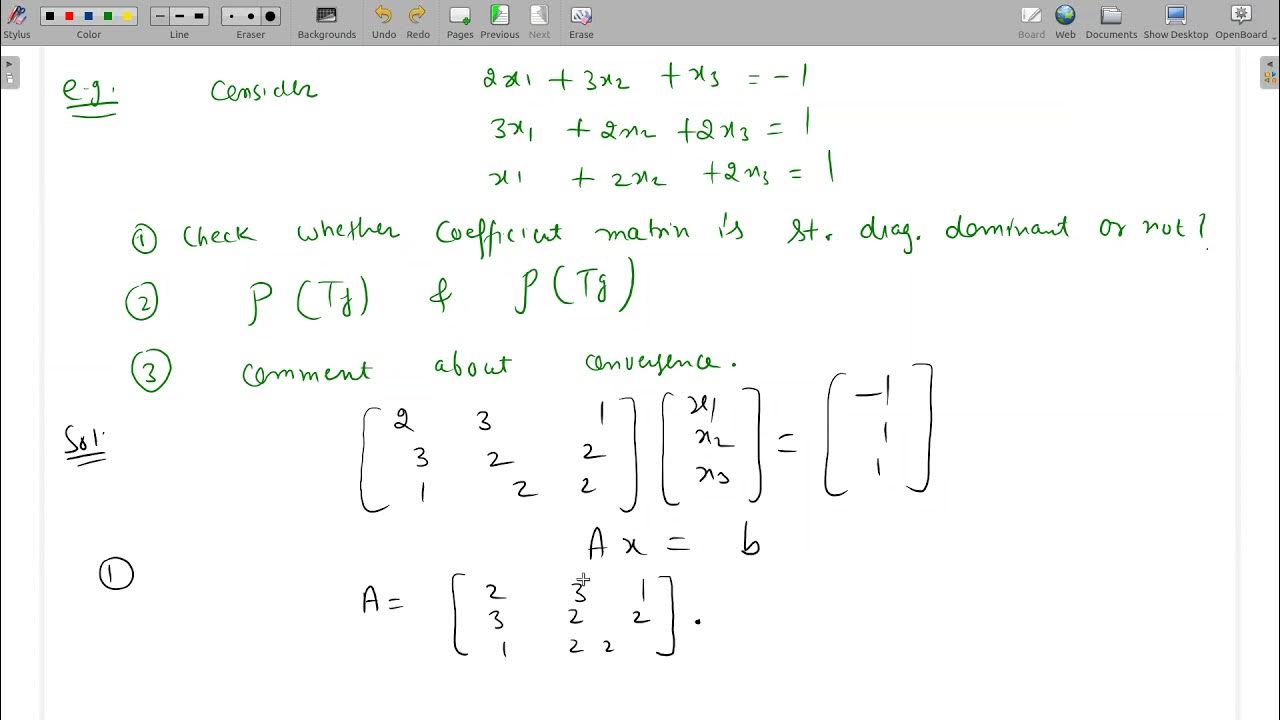 Stylus Color Line Eraser Backgrounds Undo Redo Pages Previous Next Erase Board Web Documents Show Desktop OpenBoard
e.g. Consider 2x1 + 3x2 + x3 = -1
3x1 + 2x2 + 2x3 = 1
x1 + 2x2 + 2x3 = 1
① Check whether coefficient matrix is st. diag. dominant or not?
② ρ(Tj) & ρ(Tg)
③ comment about convergence.
Sol. [2 3 1] [x1] = [-1]
[3 2 2] [x2] [1]
[1 2 2] [x3] [1]
A x = b
① A = [2 3 1]
[3 2 2].
[1 2 2]